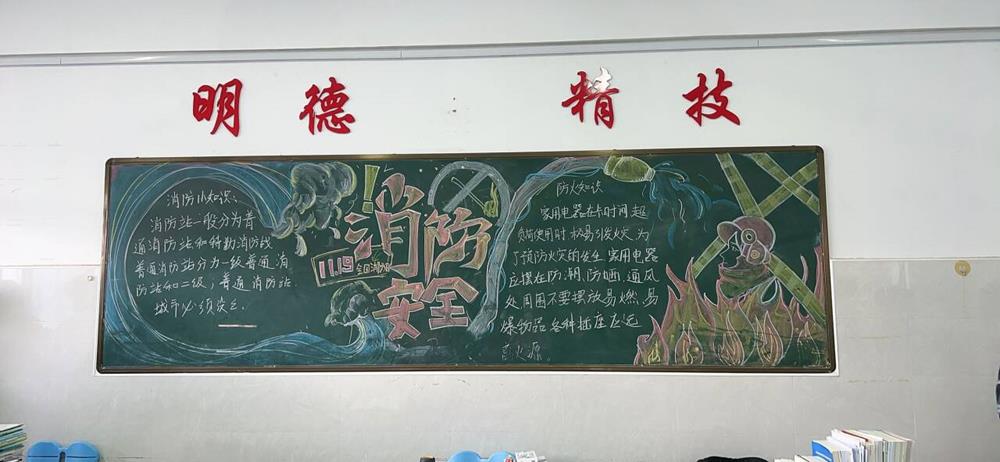 明德 精技
消防小知识：
消防站一般分为普
通消防站和特勤消防战
普通消防站分为一级普通消
防站和二级，普通消防站
城市必须设立.
!消防
11.19全国消防日
安全
防火知识
家用电器在长时间超
负荷使用时极易引发火灾，为
了预防火灾的发生家用电器
应摆在防潮、防晒、通风
处周围不要摆放易燃、易
爆物品各种插座应远
离火源。